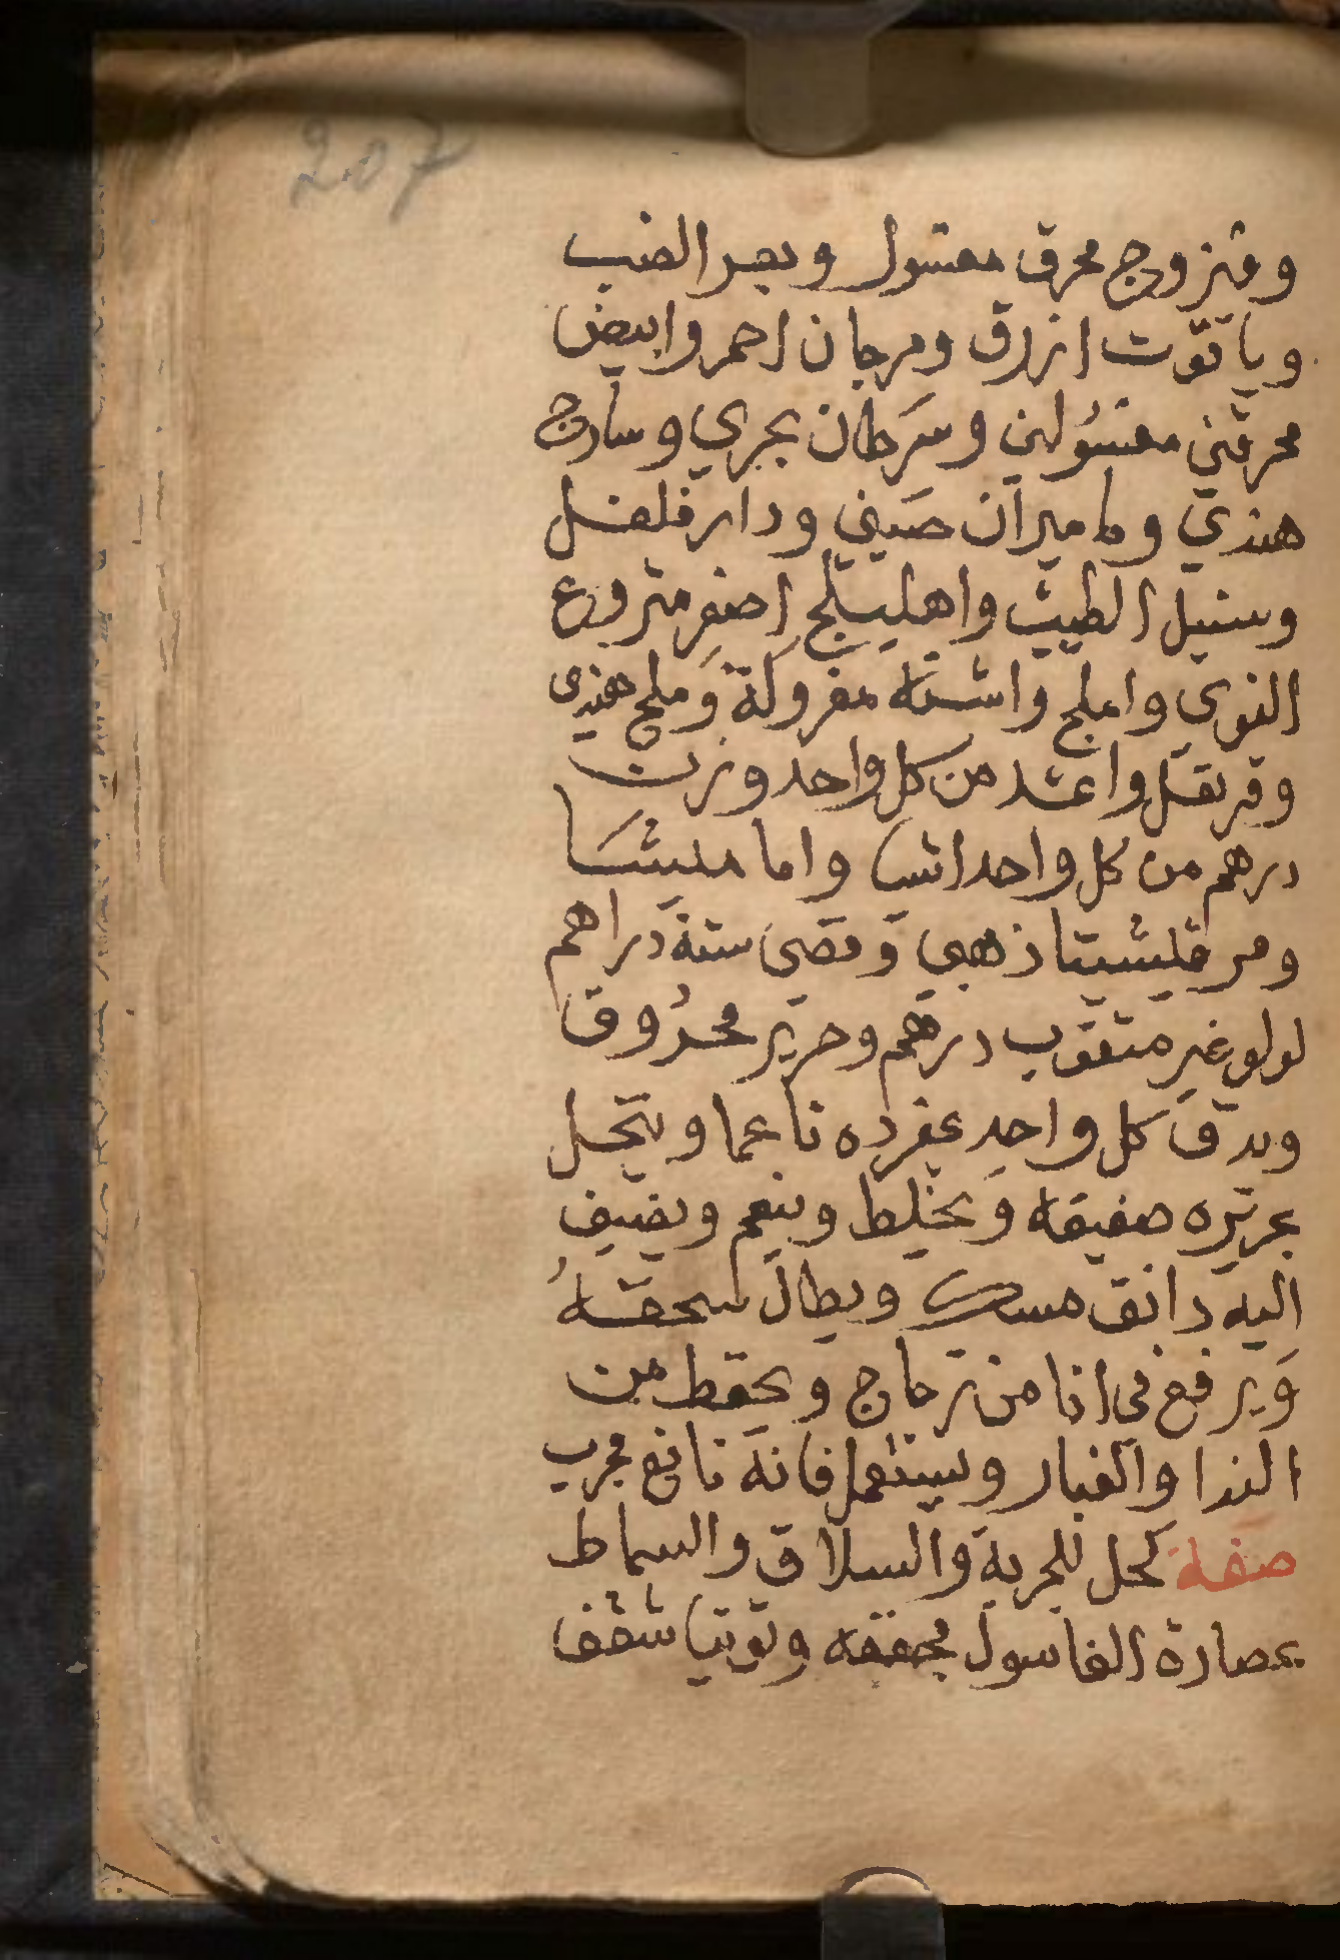 207
وفيروزج محرق مغسول وبعر الضب
وياقوت ازرق ومرجان احمر وابيض
محرقين مغسولين وسرطان بحري وسادج
هندي وماميران صيني ودار فلفل
وسنبل الطيب واهليلج اصفر منزوع
النوى واملج واشنه مفروكة وملح هندى
وقرنفل واثمد من كل واحد وزن
درهم من كل واحد اقليميا
ومرقشيتا ذهبي وفضي ستة دراهم
لولو غير مثقوب درهم وحرير محروق
ويدق كل واحد بمفرده ناعما وينخل
بحريره صفيقه ويخلط وينعم ويضيف
اليه دانق مسك ويطال سحقه
ويرفع في انا من زجاج ويحفظ من
الندا والغبار ويستعمل فانه نافع مجرب
صفة كحل للجربة والسلاق والسماط
عصارة الغاسول مجففه وتوتيا شقف